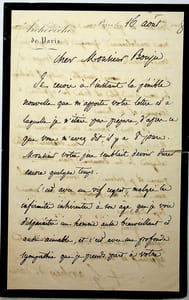 Archevêché
de Paris
16 août
Cher Monsieur
Je reçois à l'instant la pénible
nouvelle que m'apporte votre lettre et à
laquelle je n'étais pas préparé, d'après ce
que vous m'aviez dit il y a 8 jours.
Monsieur votre père semblait devoir vivre
encore quelque temps.
C'est avec un vif regret, malgré les
infirmités inhérentes à son âge que je vois
disparaître un homme aussi bienveillant et
aussi aimable, et c'est avec une profonde
sympathie que je prends part à votre